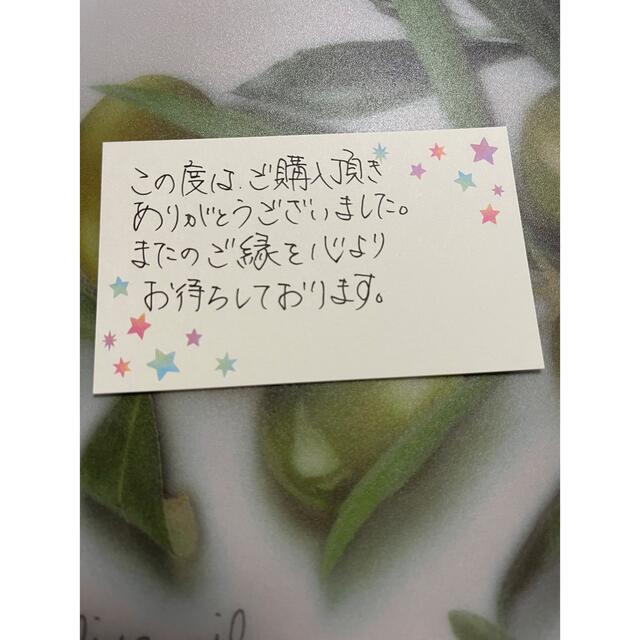 この度は、ご購入頂き
ありがとうございました。
またのご縁を心より
お待ちしております。